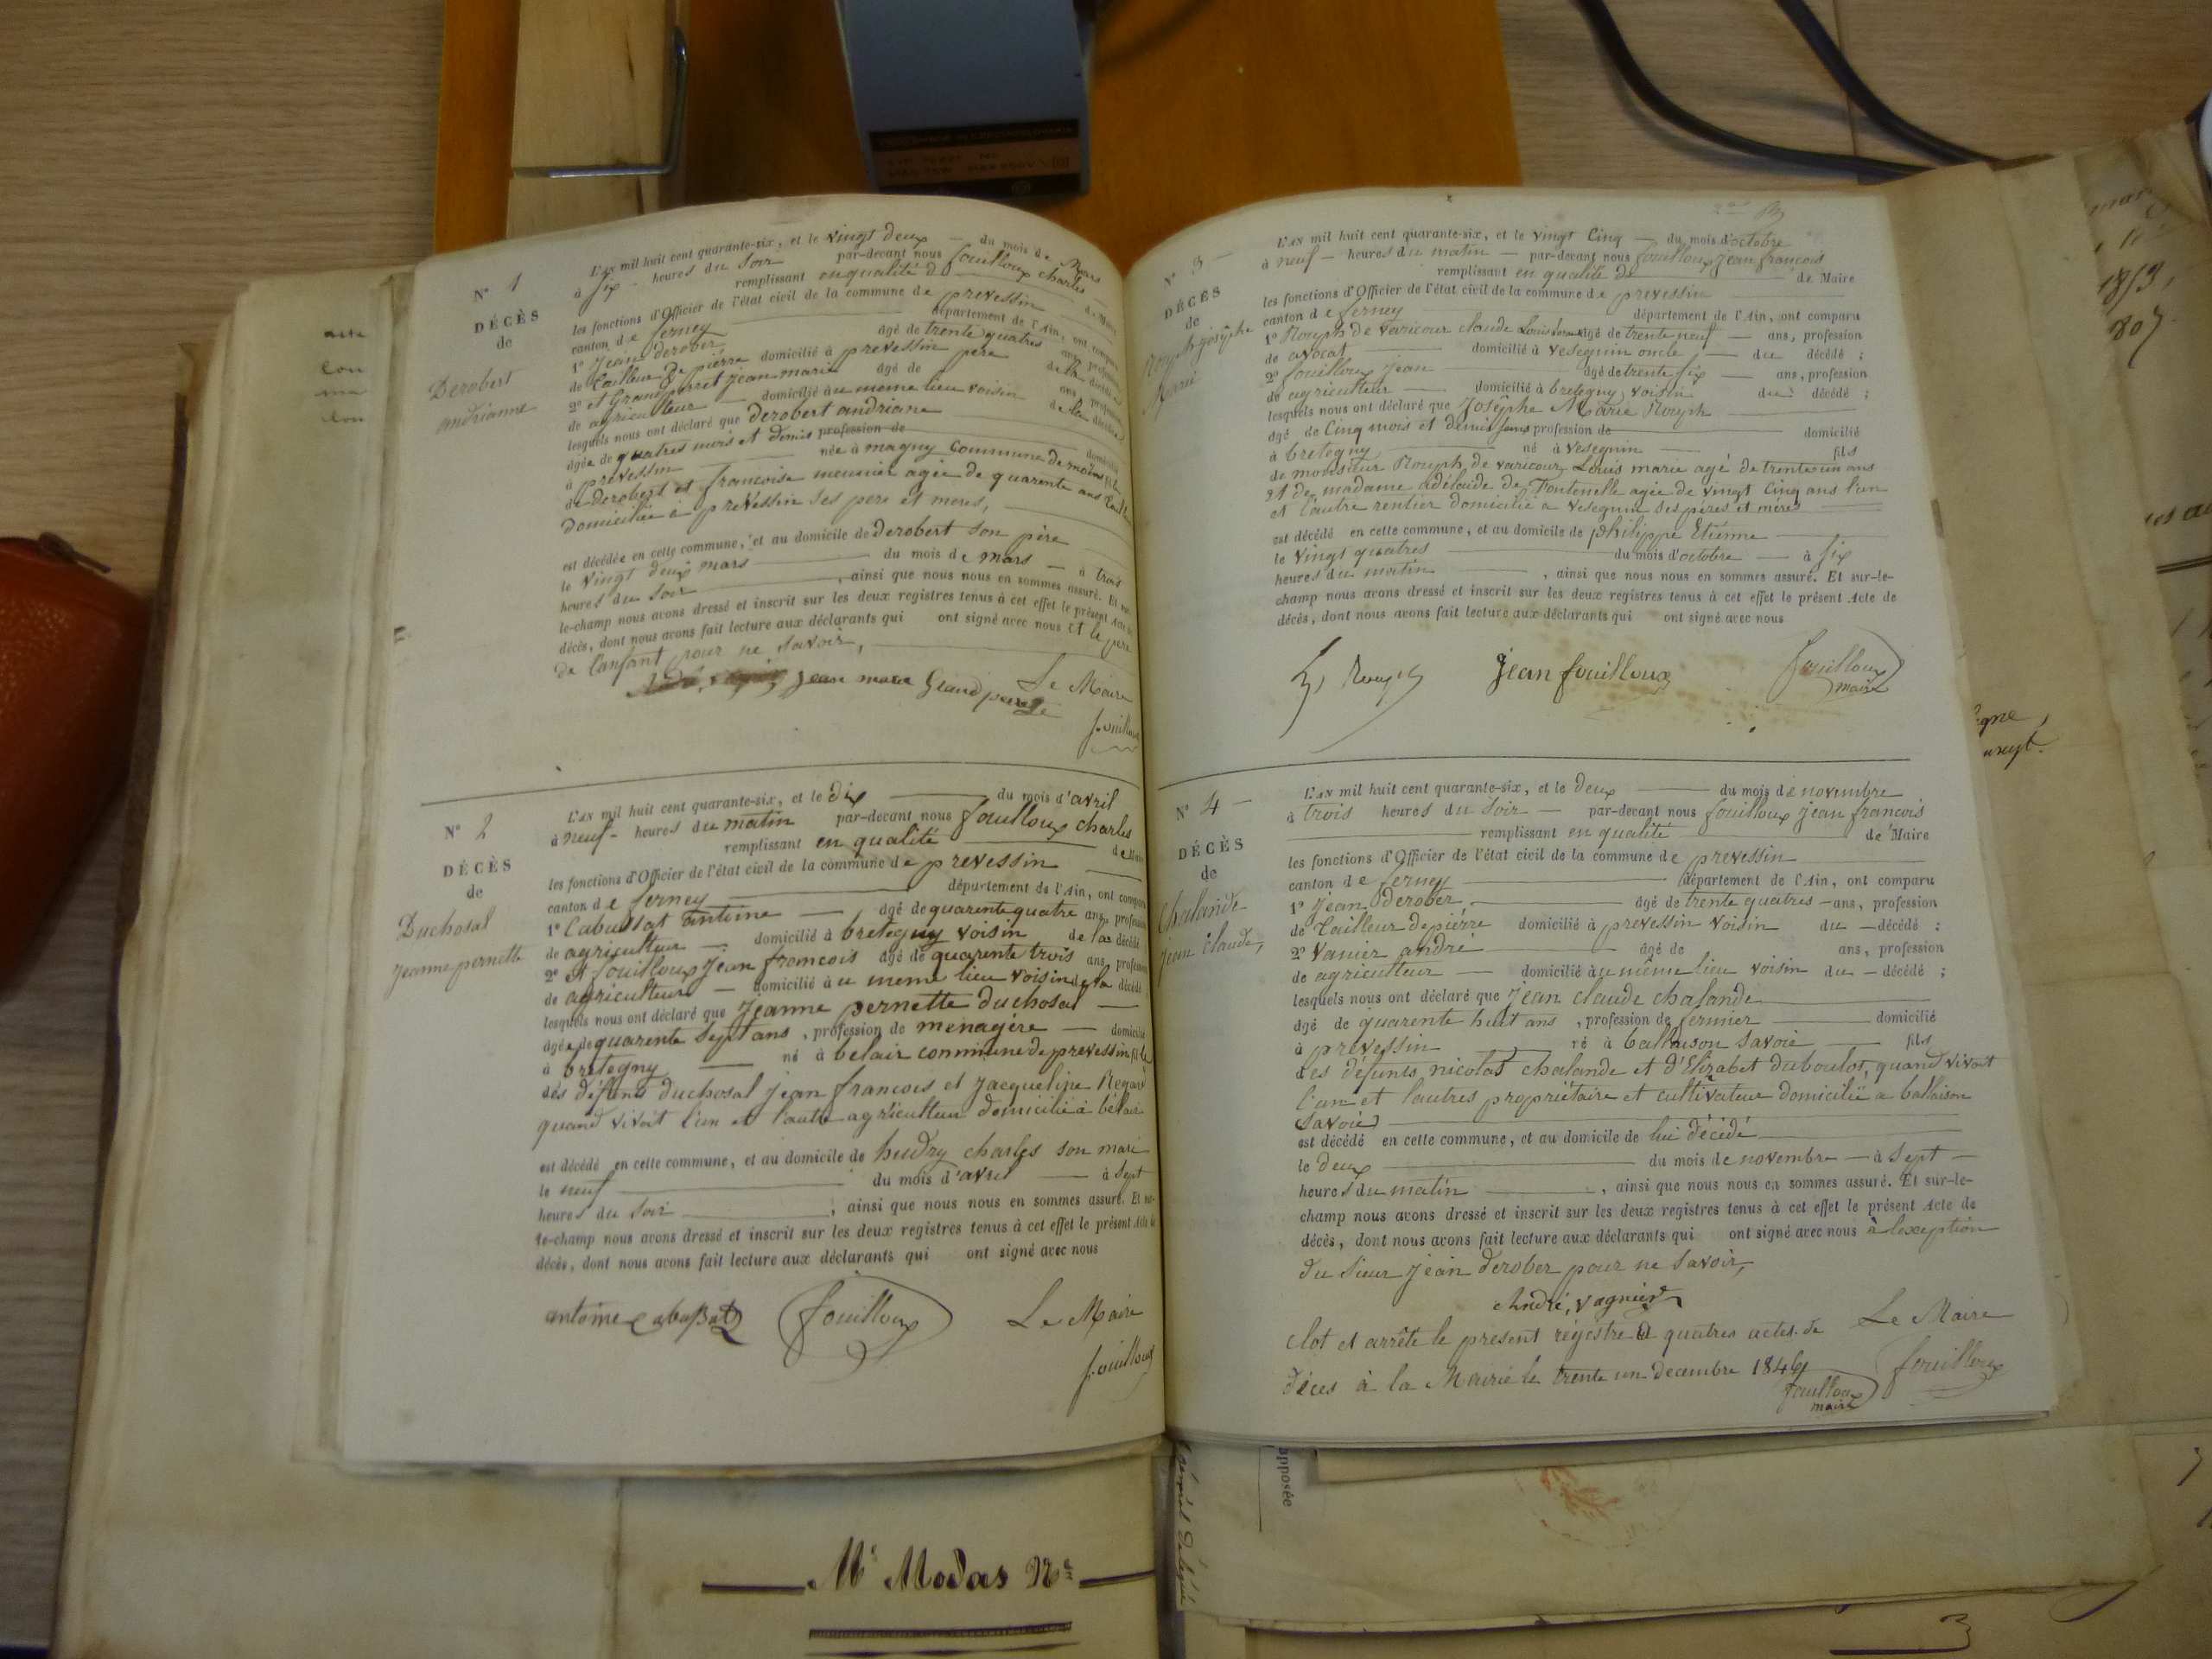 N° 1
DÉCÈS
de
Derobert
andrianne
L'AN mil huit cent quarante-six, et le vingt deux — du mois de Mars
à six - heures du soir par-devant nous fouilloux charles
remplissant en qualité de — de Maire
les fonctions d'Officier de l'état civil de la commune de prevessin
canton de ferney — département de l'Ain, ont comparu
1° Jean derober agé de trente quatres ans, profession
de tailleur de pierre domicilié à prevessin pere de la décédée
2° et Grandperret jean marie agé de ans, profession
de agriculteur — domicilié au meme lieu voisin de la décédée
lesquels nous ont déclaré que derobert andriane
agée de quatres mois et demis profession de — domicilié
à prevessin — née à magny commune de moëns fille
de derobert et francoise meunier agée de quarente ans
domiciliée a prevessin ses pere et meres,
est décédée en cette commune, et au domicile de derobert son père
le vingt deux mars — du mois de mars — à trois
heures du soir —, ainsi que nous nous en sommes assuré. Et sur-
le-champ nous avons dressé et inscrit sur les deux registres tenus à cet effet le présent Acte de
décès, dont nous avons fait lecture aux déclarants qui ont signé avec nous et le pere
de lanfant pour ne savoir,
jean marie Grand perret Le Maire
fouilloux
N° 2
DÉCÈS
de
Duchosal
jeanne pernette
L'AN mil huit cent quarante-six, et le dix — du mois d'avril
à neuf - heures du matin par-devant nous fouilloux charles
remplissant en qualité — de Maire
les fonctions d'Officier de l'état civil de la commune de prevessin
canton de ferney — département de l'Ain, ont comparu
1° Cabussat antoine — agé de quarente quatre ans, profession
de agriculteur — domicilié à bretegny voisin de la décédé
2° et fouilloux jean francois agé de quarente trois ans, profession
de agriculteur — domicilié au meme lieu voisin de la décédé
lesquels nous ont déclaré que jeanne pernette duchosal —
agée de quarente sept ans, profession de menagère — domicilié
à bretegny — né à belair commune de prevessin fille
des défunts duchosal jean francois et jacqueline Regard
quand vivoit l'un et l'autre agriculteur domicilié à bélair
est décédé en cette commune, et au domicile de hudry charles son mari
le neuf — du mois d'avril — à sept
heures du soir —, ainsi que nous nous en sommes assuré. Et sur-
le-champ nous avons dressé et inscrit sur les deux registres tenus à cet effet le présent Acte de
décès, dont nous avons fait lecture aux déclarants qui ont signé avec nous
antoine Cabussat fouilloux Le Maire
fouilloux
N° 3 —
DÉCÈS
de
Rouph josephe
Marie
L'AN mil huit cent quarante-six, et le vingt Cinq — du mois d'octobre
à neuf — heures du matin — par-devant nous fouilloux jean francois
remplissant en qualité de — de Maire
les fonctions d'Officier de l'état civil de la commune de prevessin —
canton de ferney — département de l'Ain, ont comparu
1° Rouph de varicour claude Louis agé de trente neuf — ans, profession
de avocat — domicilié à vesegnin oncle — du décédé ;
2° fouilloux jean — agé de trente six — ans, profession
de agriculteur — domicilié à bretegny, voisin du décédé ;
lesquels nous ont déclaré que Josephe Marie Rouph —
agé de Cinq mois et demis sans profession de — domicilié
à bretegny — né à vesegnin — fils
de monsieur Rouph de varicour, Louis marie agé de trente un ans
et de madame adélaide de Fontenelle agée de vingt cinq ans l'un
et l'autre rentier domicilié a vesegnin ses pères et mères —
est décédé en cette commune, et au domicile de philippe Etienne —
le vingt quatres — du mois d'octobre — à six
heures du matin —, ainsi que nous nous en sommes assuré. Et sur-le-
champ nous avons dressé et inscrit sur les deux registres tenus à cet effet le présent Acte de
décès, dont nous avons fait lecture aux déclarants qui ont signé avec nous
Rouph jean fouilloux fouilloux
maire
N° 4 —
DÉCÈS
de
Chalande
jean claude,
L'AN mil huit cent quarante-six, et le deux — du mois de novembre
à trois heures du soir — par-devant nous fouilloux jean francois
— remplissant en qualité — de Maire
les fonctions d'Officier de l'état civil de la commune de prevessin —
canton de ferney — département de l'Ain, ont comparu
1° jean derober — agé de trente quatres — ans, profession
de tailleur de pierre domicilié à prevessin voisin du — décédé ;
2° vanier andré — agé de ans, profession
de agriculteur — domicilié au même lieu voisin du — décédé ;
lesquels nous ont déclaré que jean claude chalande —
agé de quarente huit ans, profession de fermier — domicilié
à prevessin — né à ballaison savoie — fils
des défunts nicolas chalande et d'Elizabet duboulot, quand vivoit
l'un et lautres propriétaire et cultivateur domicilié a ballaison
savoie —
est décédé en cette commune, et au domicile de lui décédé —
le deux — du mois de novembre — à sept —
heures du matin —, ainsi que nous nous en sommes assuré. Et sur-le-
champ nous avons dressé et inscrit sur les deux registres tenus à cet effet le présent Acte de
décès, dont nous avons fait lecture aux déclarants qui ont signé avec nous à lexeption
du sieur jean derober pour ne savoir,
André, vagnier
Clot et arrête le present régistre à quatres actes de Le Maire
déces à la Mairie le trente un decembre 1846 fouilloux
fouilloux
maire
Mr Modas Nre
apposée
1813,
807
3